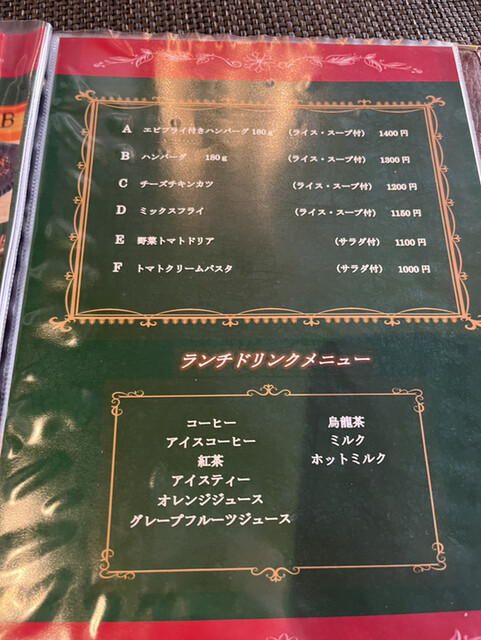 B
A エビフライ付きハンバーグ 180g (ライス・スープ付) 1400円
B ハンバーグ 180g (ライス・スープ付) 1300円
C チーズチキンカツ (ライス・スープ付) 1200円
D ミックスフライ (ライス・スープ付) 1150円
E 野菜トマトドリア (サラダ付) 1100円
F トマトクリームパスタ (サラダ付) 1000円
ランチドリンクメニュー
コーヒー
アイスコーヒー
紅茶
アイスティー
オレンジジュース
グレープフルーツジュース
烏龍茶
ミルク
ホットミルク